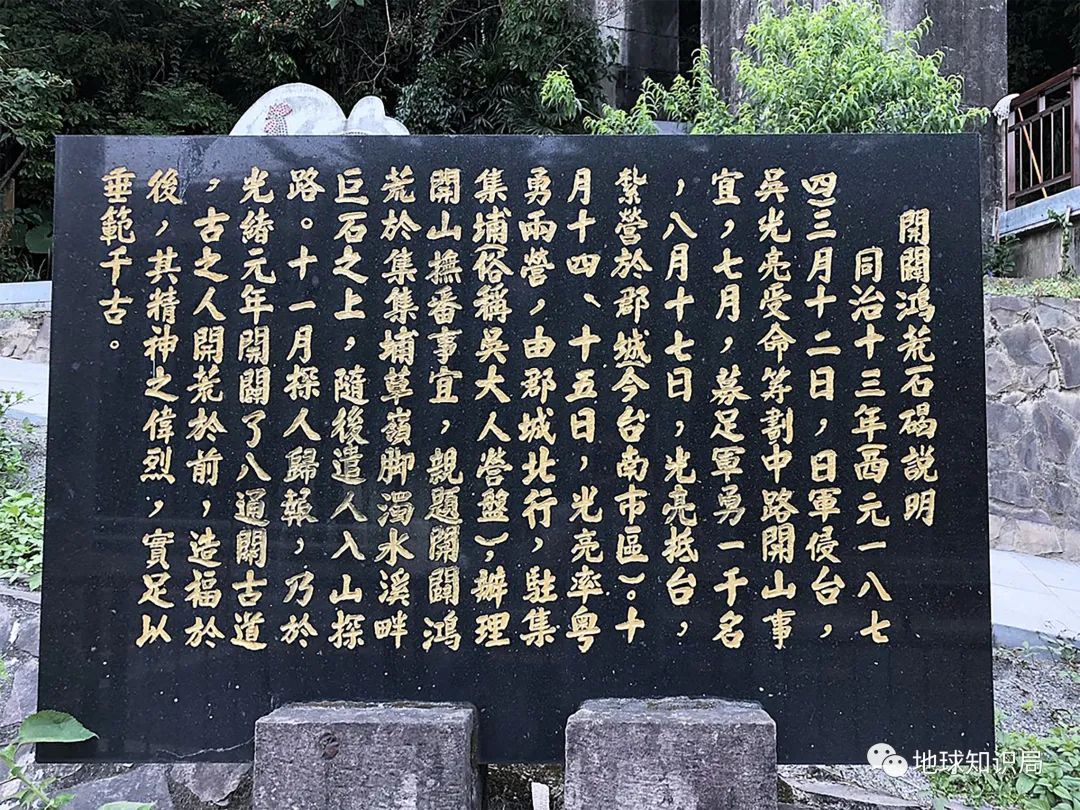 開闢鴻荒石碣説明
同治十三年(西元一八七
四)三月十二日，日軍侵台，
吳光亮受命筹劃中路開山事
宜，七月，募足軍勇一千名
，八月十七日，光亮抵台，
紮營於郡城(今台南市區)。十
月十四、十五日，光亮率粤
勇兩營，由郡城北行，駐集
集埔(俗稱吳大人營盤)，辦理
開山撫番事宜，親題開闢鴻
荒於集集埔草嶺脚濁水溪畔
巨石之上，隨後遣人入山探
路。十一月探人歸報，乃於
光緒元年開闢了八通關古道
，古之人開荒於前，造福於
後，其精神之偉烈，實足以
垂範千古。
地球知识局